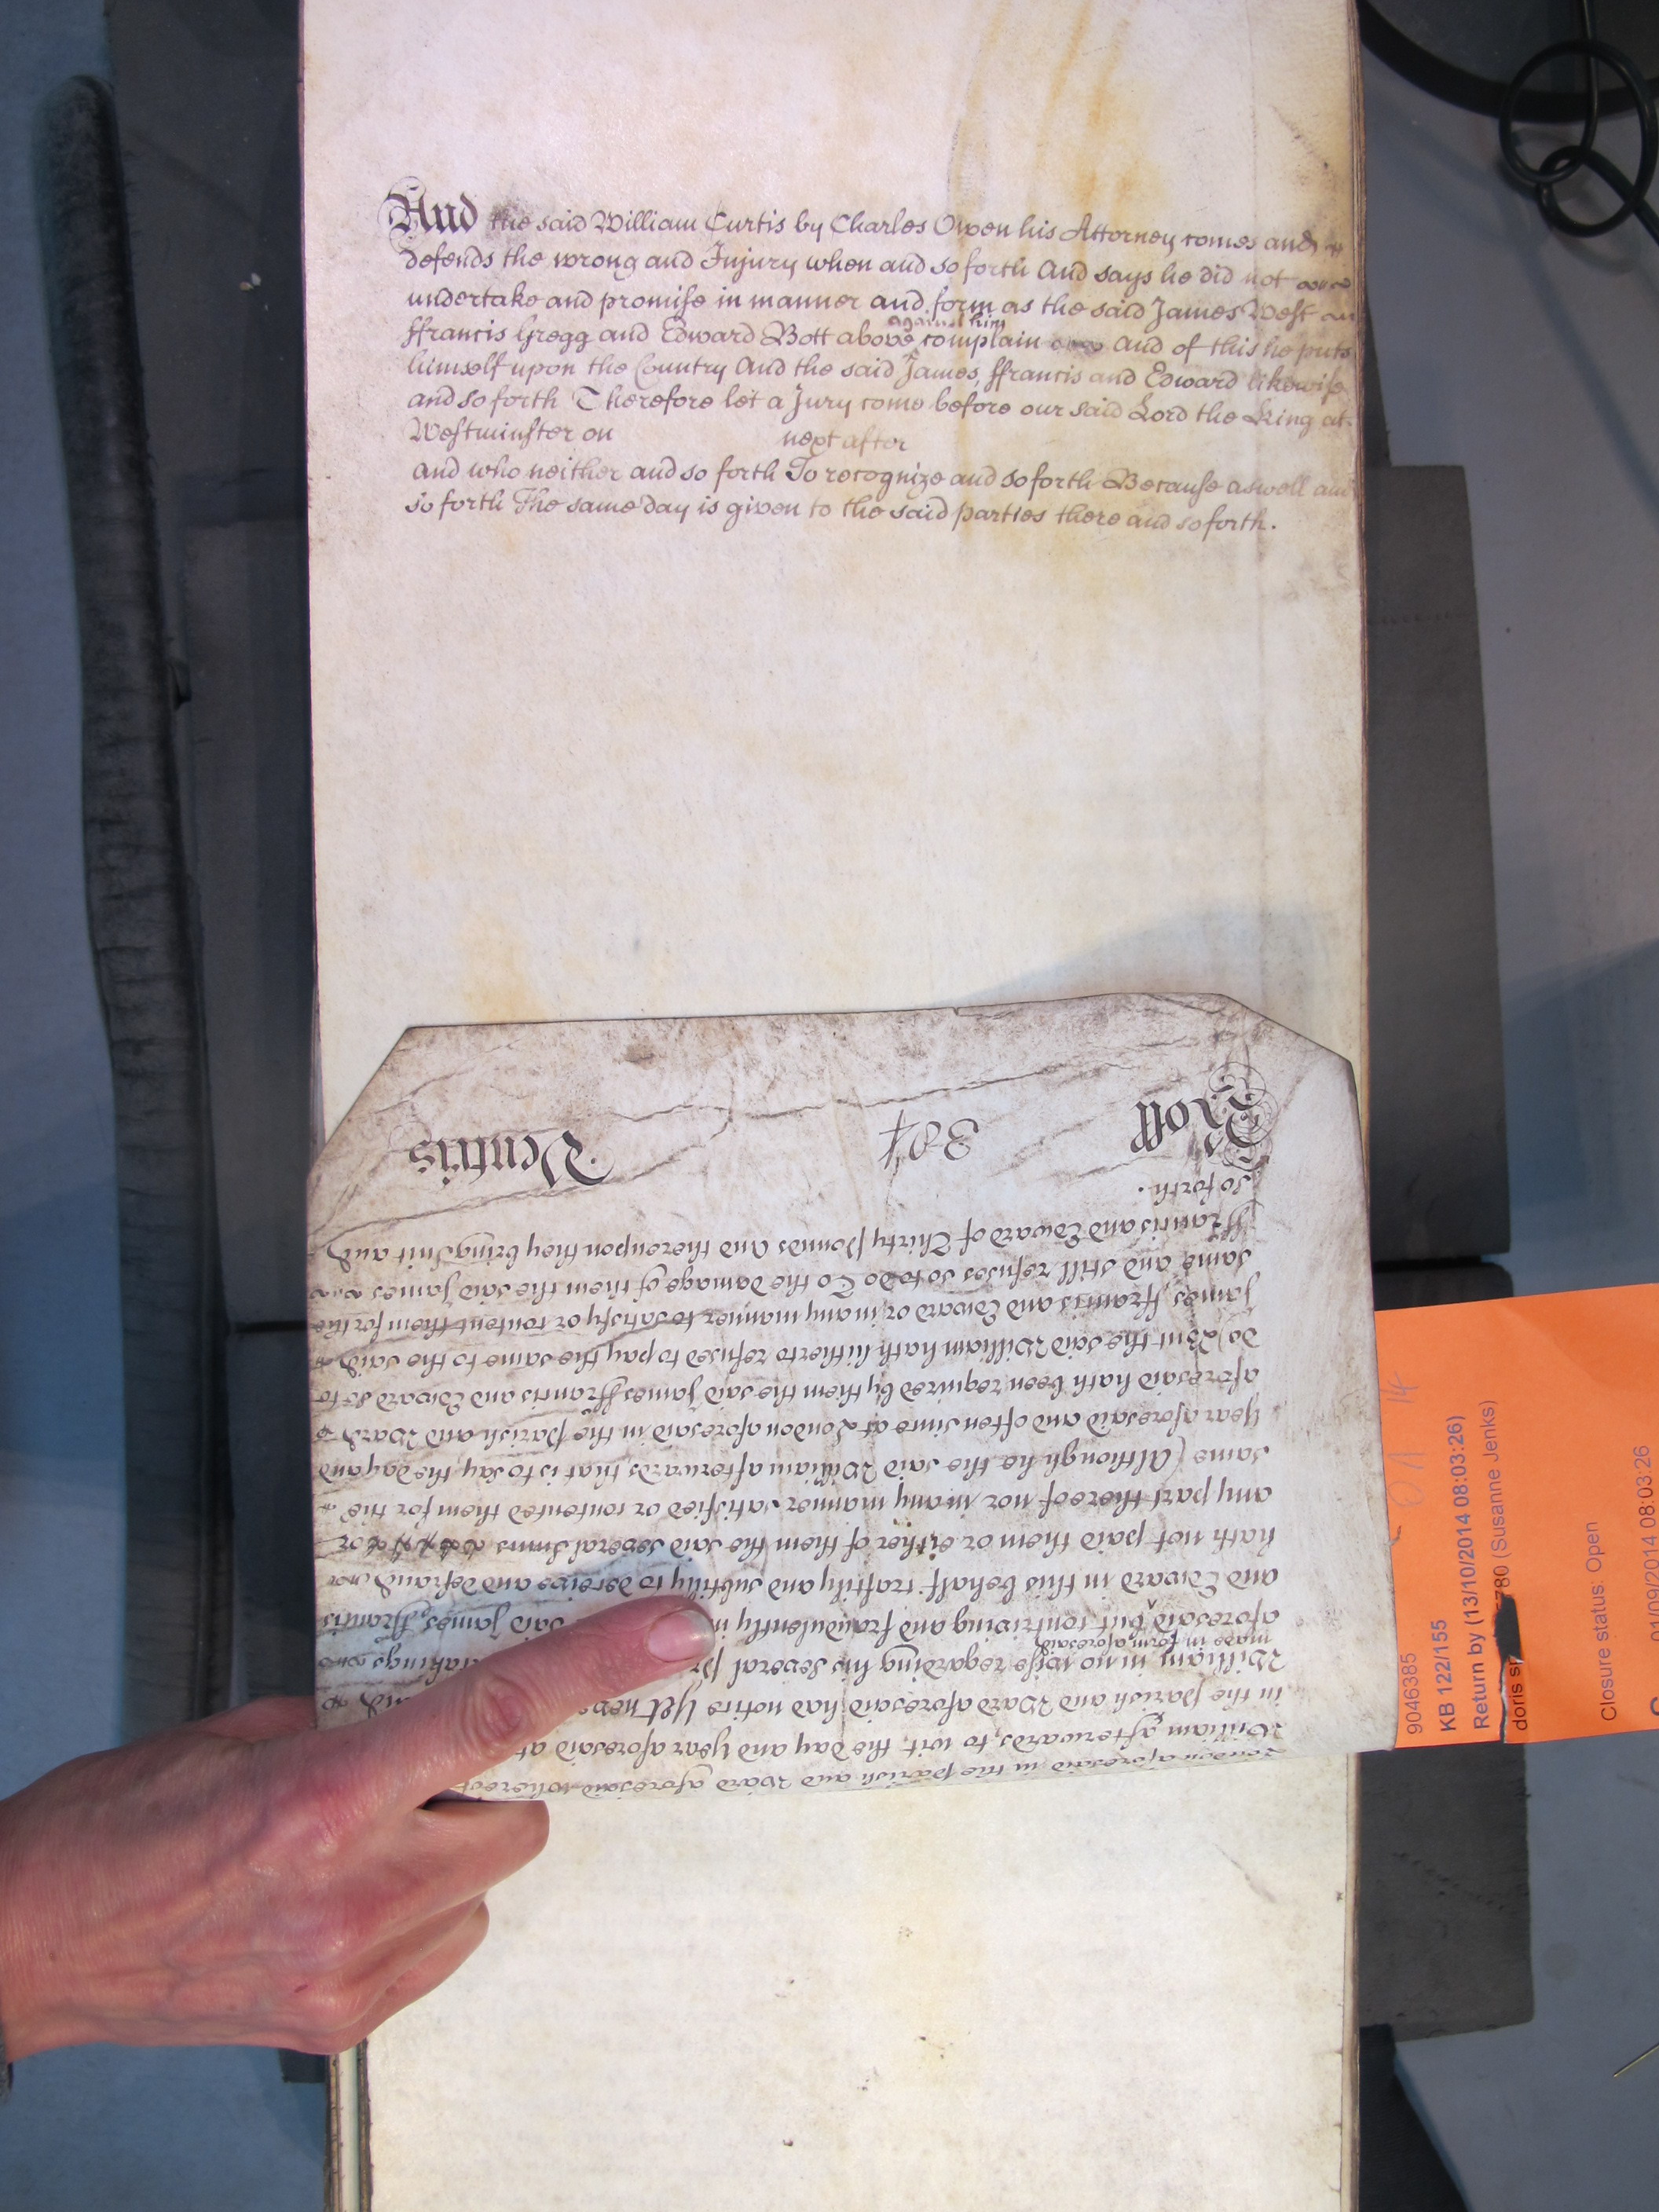 And the said William Curtis by Charles Owen his Attorney comes and
defends the wrong and Injury when and so forth And says he did not
undertake and promise in manner and form as the said James West
ffrancis Gregg and Edward Bott above against him complain And of this he puts
himself upon the Country And the said James, ffrancis and Edward likewise
and so forth Therefore let a Jury come before our said Lord the King at
Westminster on next after
and who neither and so forth To recognize and so forth Because aswell and
so forth The same day is given to the said parties there and so forth.
London aforesaid in the parish and Ward aforesaid Whereof
William afterwards, to wit, the day and Year aforesaid at
in the parish and Ward aforesaid had notice Yet
William in no wise regarding his several
made in form aforesaid
aforesaid but contriving and fraudulently said James, ffrancis
and Edward in this behalf craftily and subtilly to deceive and defraud
hath not paid them or either of them the said several Sums or
any part thereof nor in any manner satisfied or contented them for the
same (Although he the said William afterwards that is to say, the day and
Year aforesaid and often since at London aforesaid in the parish and Ward
aforesaid hath been required by them the said James ffrancis and Edward so to
do) But the said William hath hitherto refused to pay the same to the said
James, ffrancis and Edward or in any manner to satisfy or content them for the
same and still refuses so to do To the damage of them the said James
ffrancis and Edward of Thirty Pounds And thereupon they bring Suit and
so forth.
Roll 384 Ventris
9046385
KB 122/155
Return by (13/10/2014 08:03:26)
doris 780 (Susanne Jenks)
Closure status: Open
01/09/2014 08:03:26